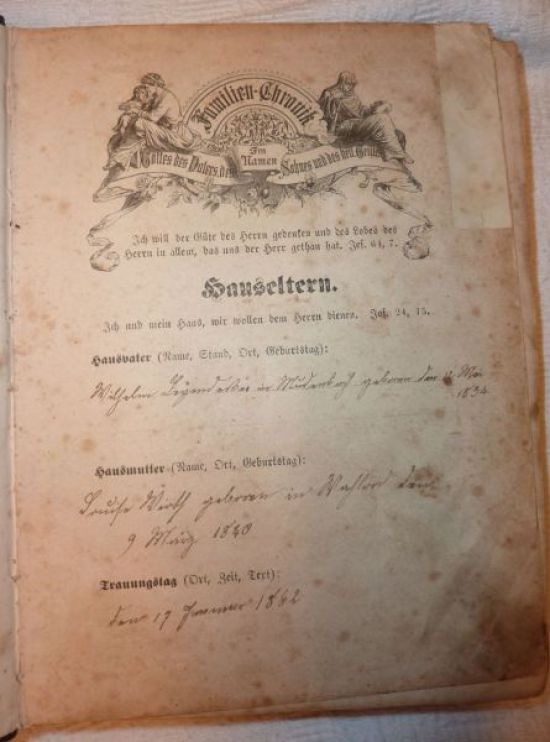 Familien-Chronik
Im
Namen
Gottes des Vaters, des Sohnes und des heil. Geistes
Ich will der Güte des Herrn gedenken und des Lobes des
Herrn in allem, das uns der Herr gethan hat. Jes. 63, 7.
Hauseltern.
Ich und mein Haus, wir wollen dem Herrn dienen. Jos. 24, 15.
Hausvater (Name, Stand, Ort, Geburtstag):
Wilhelm in geboren den Mai
1834
Hausmutter (Name, Ort, Geburtstag):
Louise Wirth geboren in den
9 März 1840
Trauungstag (Ort, Zeit, Text):
den 17 Januar 1862